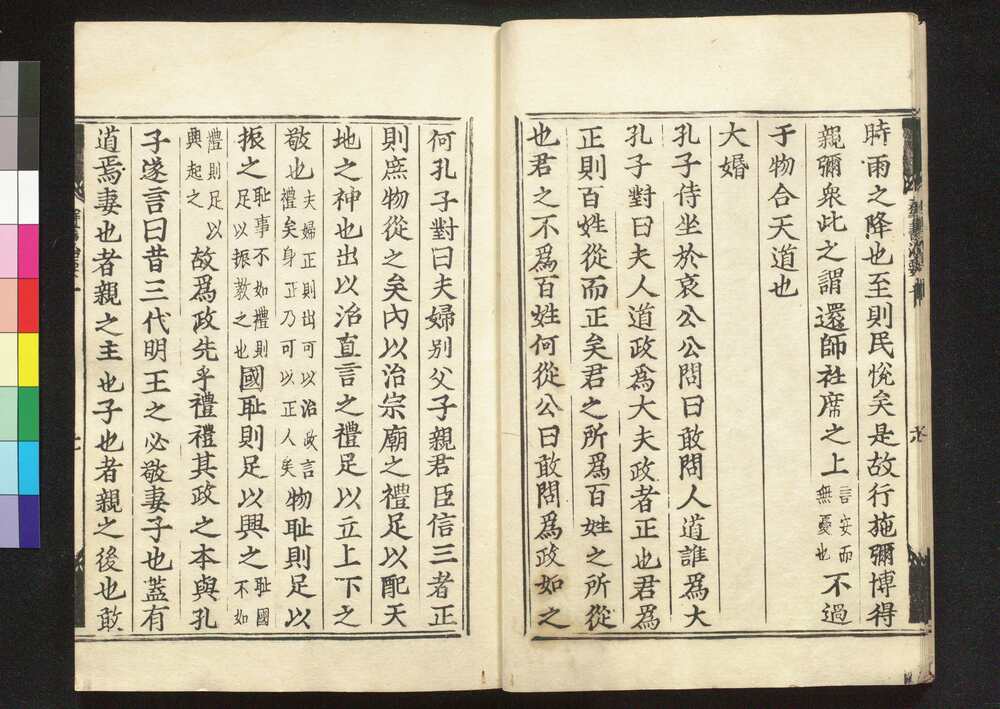 時雨之降也至則民悅矣是故行施彌博得
親彌衆此之謂還師社席之上言安而無憂也不過
于物合天道也
大婚
孔子侍坐於哀公公問曰敢問人道誰爲大
孔子對曰夫人道政爲大夫政者正也君爲
正則百姓從而正矣君之所爲百姓之所從
也君之不爲百姓何從公曰敢問爲政如之
何孔子對曰夫婦別父子親君臣信三者正
則庶物從之矣內以治宗廟之禮足以配天
地之神也出以治直言之禮足以立上下之
敬也夫婦正則出可以治政言禮矣身正乃可以正人矣物耻則足以
振之耻事不如禮則足以振敎之也國耻則足以興之耻國不如
禮則足以興起之故爲政先乎禮禮其政之本與孔
子遂言曰昔三代明王之必敬妻子也蓋有
道焉妻也者親之主也子也者親之後也敢